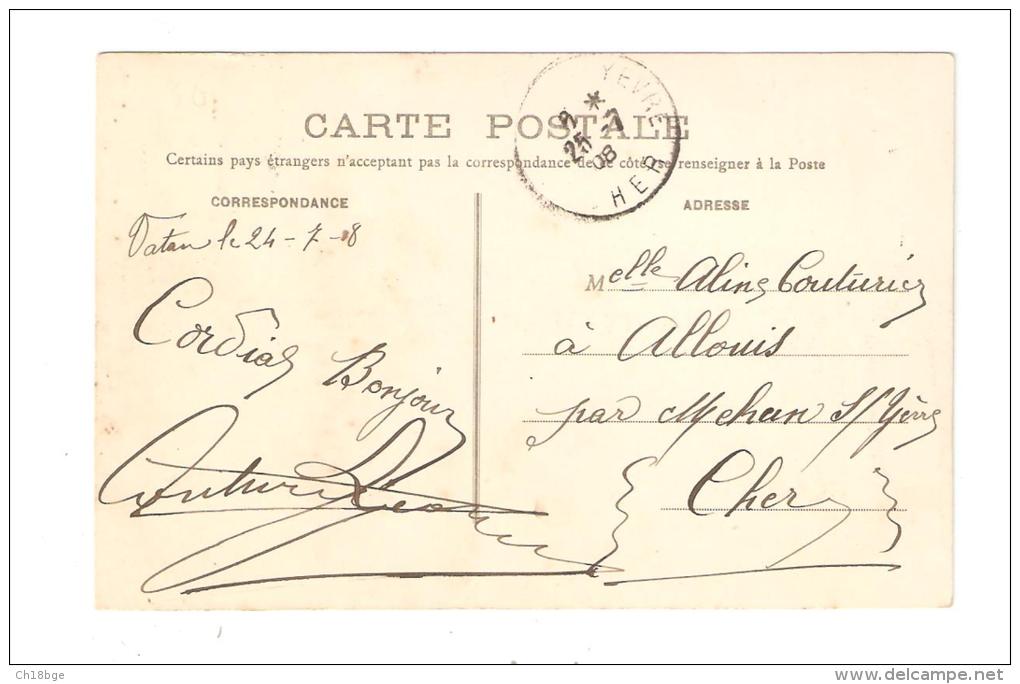 CARTE POSTALE
Certains pays étrangers n'acceptent pas la correspondance de ce côté, se renseigner à la Poste
YEVRE
* 
25 -7
08
HER
CORRESPONDANCE
Vatan le 24-7-8
Cordial Bonjour
ADRESSE
Melle Aline Couturier
à Allouis
par Mehun S/ Yèvre
Cher
Ch18bge
www.delcampe.net